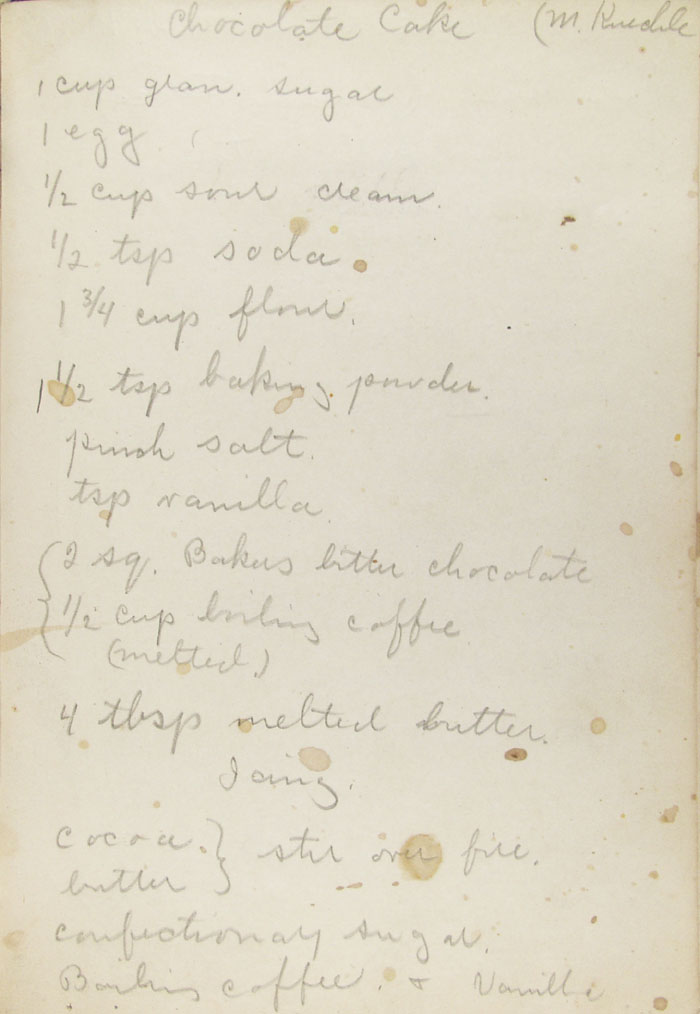 Chocolate Cake (M. Kuechle
1 cup gran. sugar
1 egg
1/2 cup sour cream.
1/2 tsp soda.
1 3/4 cup flour.
1 1/2 tsp baking powder.
pinch salt.
tsp vanilla
2 sq. Bakers bitter chocolate
1/2 cup boiling coffee
(melted.)
4 tbsp melted butter.
Icing.
cocoa. } stir over fire.
butter
confectionary sugar.
Boiling coffee. + Vanilla